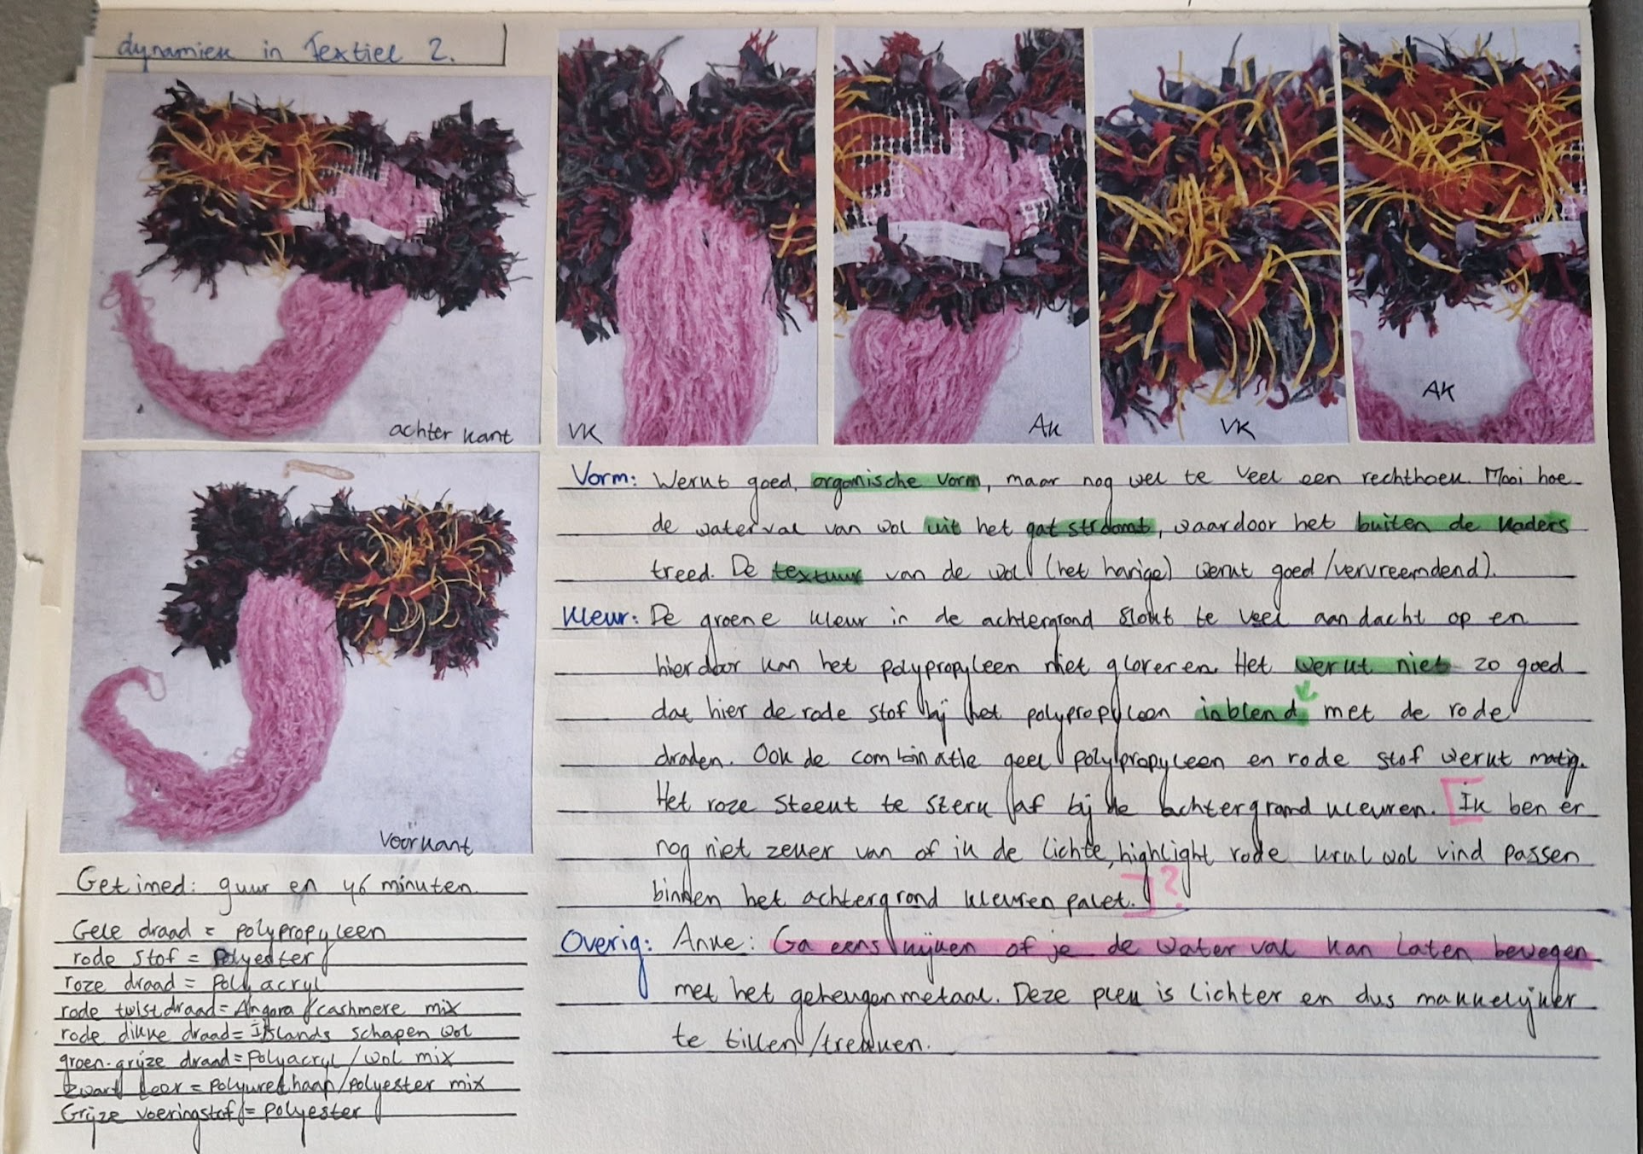 dynamiek in Textiel 2.
achter kant
VK
AK
VK
AK
voorkant
Getimed: 9uur en 46 minuten.
Gele draad = polypropyleen
rode stof = Polyester
roze draad = Poly acryl
rode twist draad = Angora / cashmere mix
rode dikke draad = IJslands schapen wol
groen-grijze draad = Polyacryl / wol mix
zwart leer = polyurethaan/polyester mix
Grijze voeringstof = polyester
Vorm: Werkt goed, organische vorm, maar nog wel te veel een rechthoek. Mooi hoe
de waterval van wol uit het gat stroomt, waardoor het buiten de kaders
treed. De textuur van de wol (het harige) werkt goed /vervreemdend).
Kleur: De groene kleur in de achtergrond slokt te veel aandacht op en
hierdoor kan het polypropyleen niet gloreren. Het werkt niet zo goed
dat hier de rode stof bij het polypropyleen inblend, met de rode
draden. Ook de combinatie geel polypropyleen en rode stof werkt matig.
Het roze steekt te sterk af bij de achtergrond kleuren. [Ik ben er
nog niet zeker van of ik de lichte, highlight rode krul wol vind passen
binnen het achtergrond kleuren palet.]?
Overig: Anke: Ga eens kijken of je de water val kan laten bewegen
met het geheugenmetaal. Deze plek is lichter en dus makkelijker
te tillen/trekken.